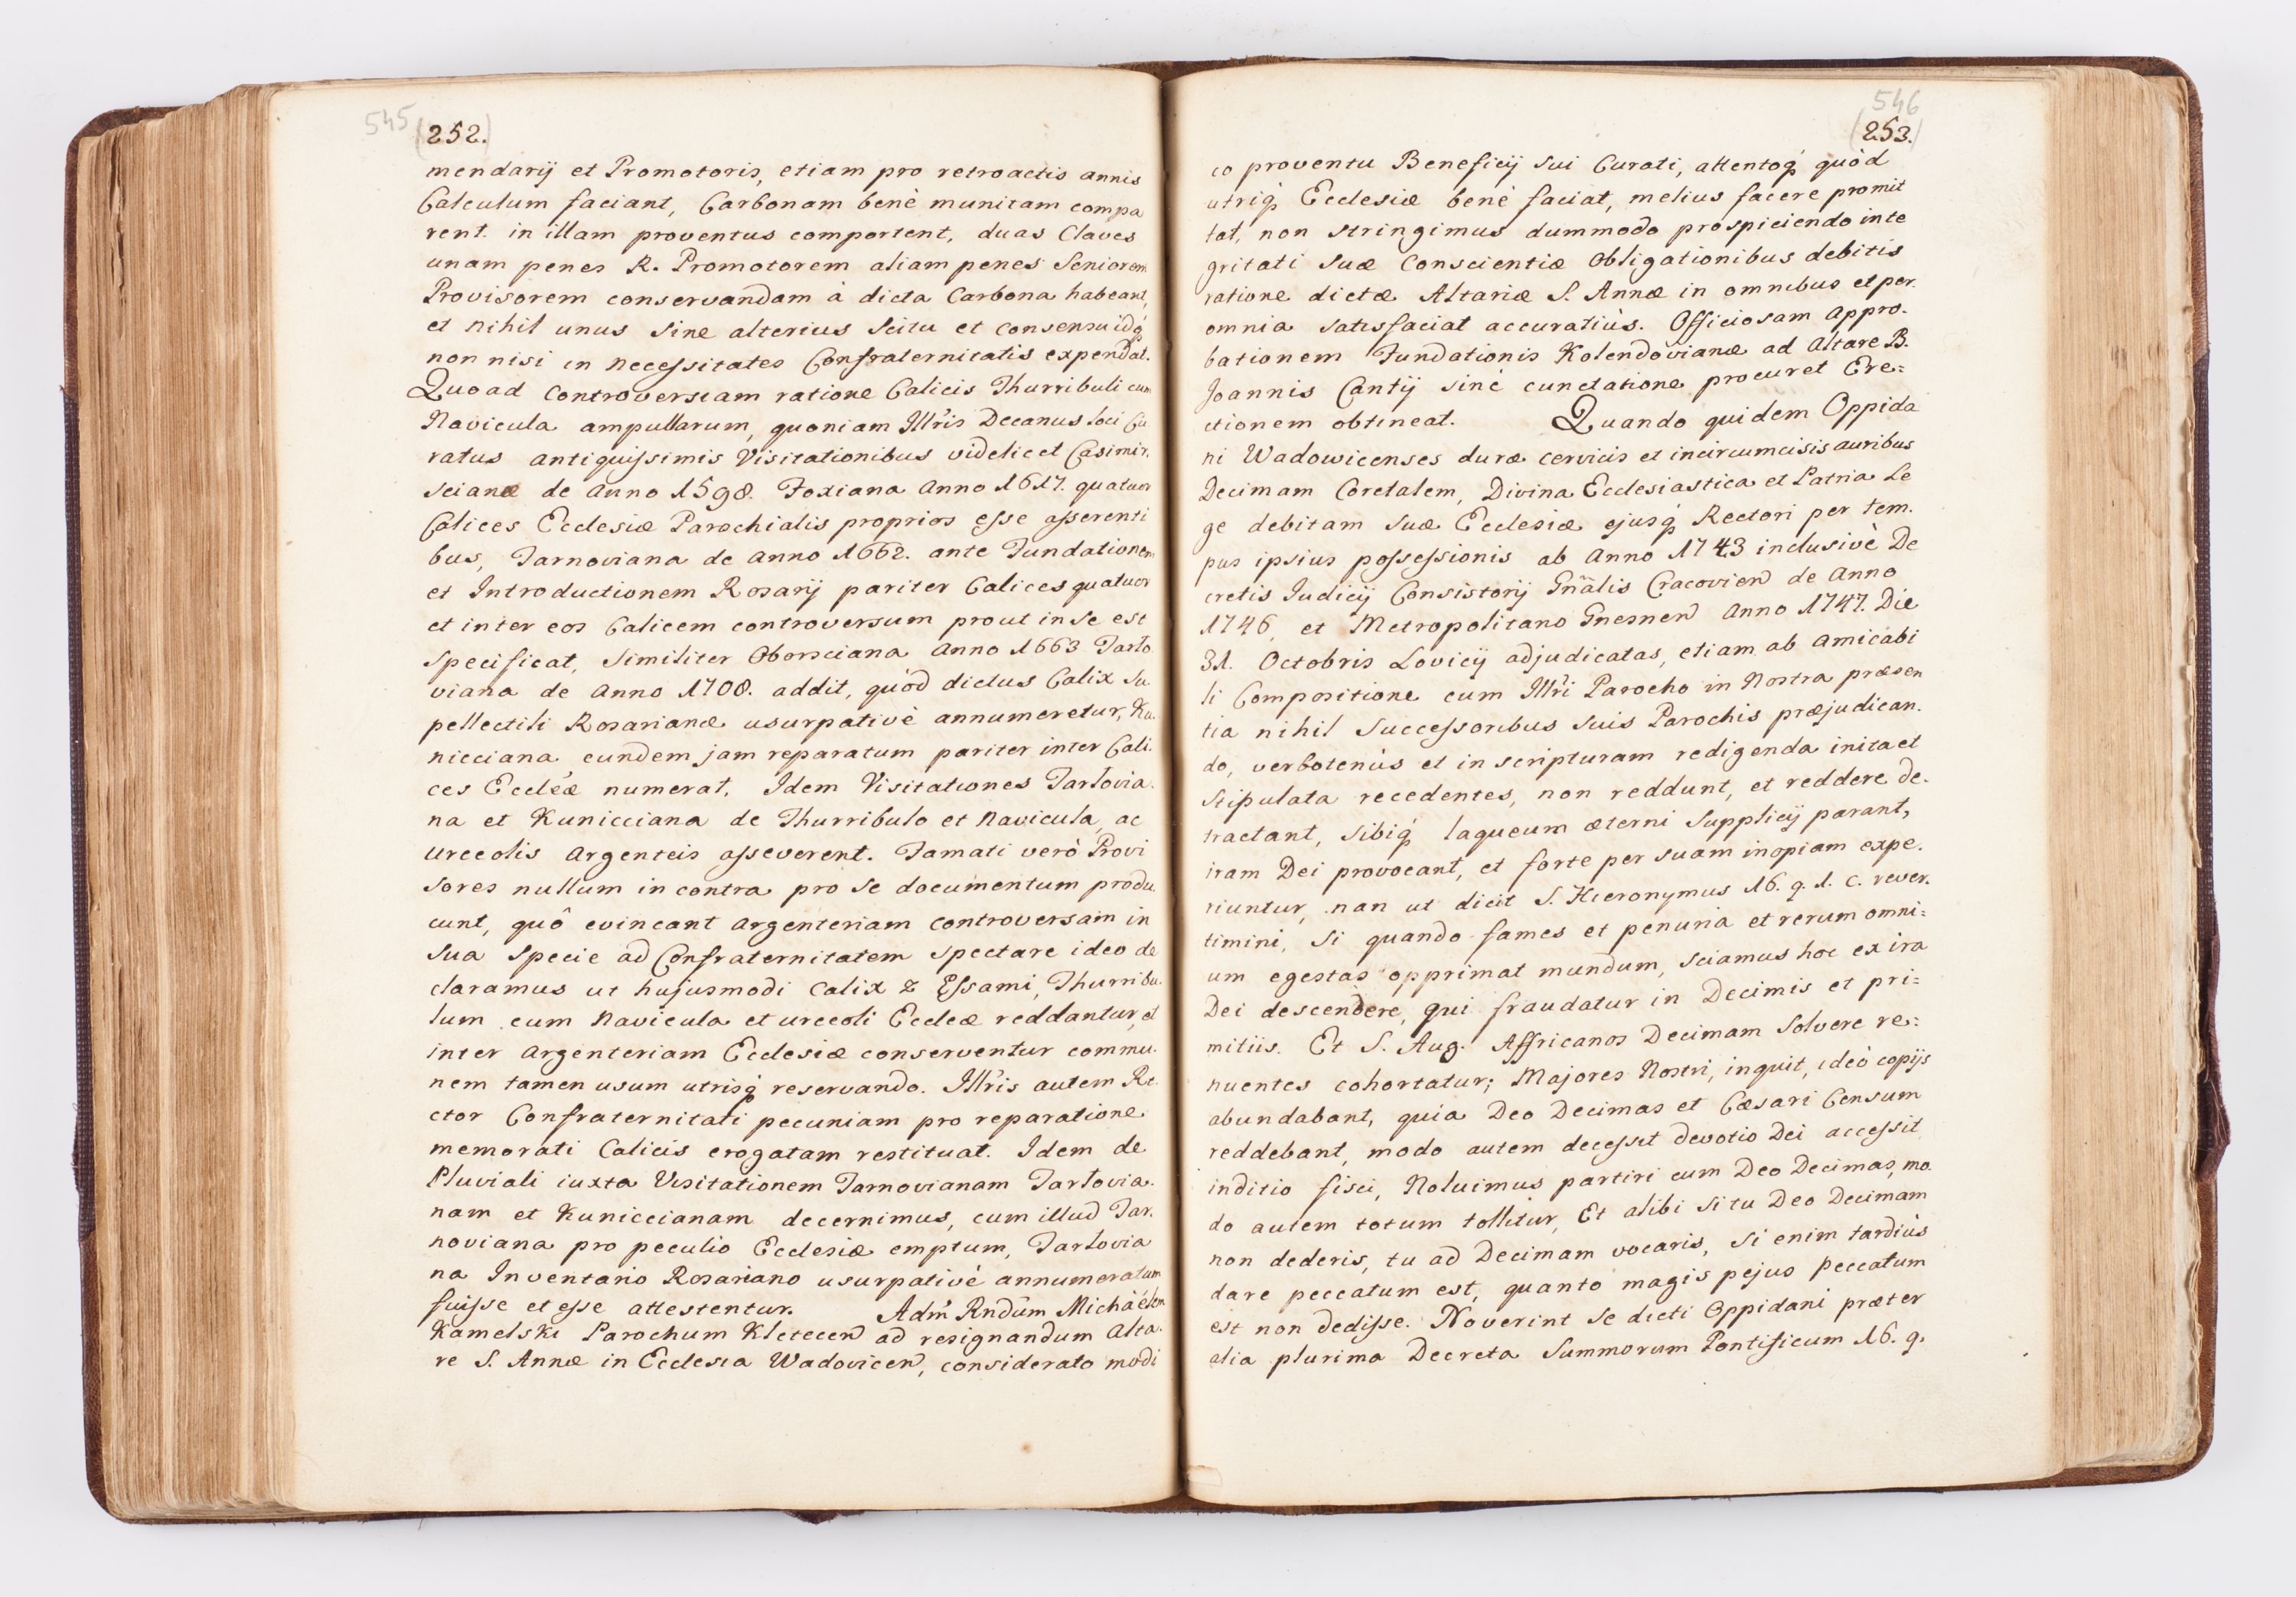 545 (252.)
mendarij et Promotoris, etiam pro retroactis annis
Calculum faciant, Carbonam benè munitam compa
rent. in illam proventus comportent, duas Claves
unam penes R. Promotorem aliam penes Seniorem
Provisorem conservandam à dicta Carbona habeant,
et nihil unus sine alterius scitu et consensu idq́
non nisi in necessitates Confraternitatis expendat.
Quoad Controversiam ratione Calicis Thurribuli cum
Navicula ampullarum, quoniam Illr̃is Decanus loci Cu
ratus antiquissimis Visitationibus videlicet Casimir.
sciana de Anno 1598. Foxiana Anno 1617. quatuor
Calices Ecclesiæ Parochialis proprios esse asserenti
bus, Tarnoviana de Anno 1662. ante Fundationem
et Introductionem Rosarij pariter Calices quatuor
et inter eos Calicem controversum prout in se est
specificat, similiter Oborsciana Anno 1663 Tarło
viana de Anno 1708. addit, quòd dictus Calix Su
pellectili Rosarianæ usurpativè annumeretur, Ku.
nicciana eundem jam reparatum pariter inter Cali.
ces Eccleæ numerat. Idem Visitationes Tarłovia.
na et Kunicciana de Thurribulo et Navicula, ac
Urceolis Argenteis asseverent. Famati verò Provi
sores nullum in contra pro se documentum produ.
cunt, quô evincant Argenteriam controversam in
sua specie ad Confraternitatem spectare ideo de
claramus ut hujusmodi Calix z Essami, Thurribu.
lum cum Navicula et urceoli Eccleæ reddantur, et
inter Argenteriam Ecclesiæ conserventur commu.
nem tamen usum utrisq́ reservando. Illr̃is autem Re.
ctor Confraternitati pecuniam pro reparatione
memorati Calicis erogatam restituat. Idem de
Pluviali iuxta Visitationem Tarnovianam Tarłovia.
nam et Kuniccianam decernimus, cum illud Tar.
noviana pro peculio Ecclesiæ emptum, Tarłovia
na Inventario Rosariano usurpativè annumeratum
fuisse et esse attestentur. Adm̃ Rndũm Michàélem
Kamelski Parochum Kleteceñ ad resignandum Alta.
re S. Annæ in Ecclesia Wadoviceñ, considerato modi
546
(253.)
co proventu Beneficij sui Curati, attentoq́ quòd
utriq́ Ecclesiæ benè faciat, melius facere promit
tat, non stringimus dummodo prospiciendo inte
gritati suæ Conscientiæ Obligationibus debitis
ratione dictæ Altariæ S. Annæ in omnibus et per.
omnia satisfaciat accuratiùs. Officiosam Appro.
bationem Fundationis Kolendovianæ ad Altare B.
Joannis Cantij sinè cunctatione procuret Ere=
ctionem obtineat. Quando quidem Oppida
ni Wadowicenses duræ cervicis et incircumcisis auribus
Decimam Coretalem, Divina Ecclesiastica et Patria Le
ge debitam suæ Ecclesiæ ejusq́ Rectori per tem.
pus ipsius possessionis ab Anno 1743 inclusivè De
cretis Iudicij Consistorij Gnãlis Cracovieñ de Anno
1746, et Metropolitano Gnesneñ Anno 1747. Die
31. Octobris Lovicij adjudicatas, etiam ab amicabi
li Compositione cum Illr̃i Parocho in Nostra præsen
tia nihil Successoribus suis Parochis præjudican.
do, verbotenùs et in scripturam redigenda inita et
stipulata recedentes, non reddunt, et reddere de.
tractant, sibiq́ laqueum æterni Supplicij parant,
iram Dei provocant, et forte per suam inopiam expe.
riuntur, nan ut dicit S. Hieronymus 16. q. 1. c. rever.
timini, si quando fames et penuria et rerum omni=
um egestas opprimat mundum, sciamus hoc ex ira
Dei descendere, qui fraudatur in Decimis et pri=
mitiis. Et S. Aug. Affricanos Decimam solvere re=
nuentes cohortatur; Majores Nostri, inquit, ideò copijs
abundabant, quia Deo Decimas et Cæsari Censum
reddebant, modo autem decessit devotio Dei accessit
inditio fisci, Noluimus partiri cum Deo Decimas, mo
do autem totum tollitur, Et alibi si tu Deo Decimam
non dederis, tu ad Decimam vocaris, si enim tardiùs
dare peccatum est, quanto magis pejus peccatum
est non dedisse. Noverint se dicti Oppidani præter
alia plurima Decreta Summorum Pontificum 16. q.